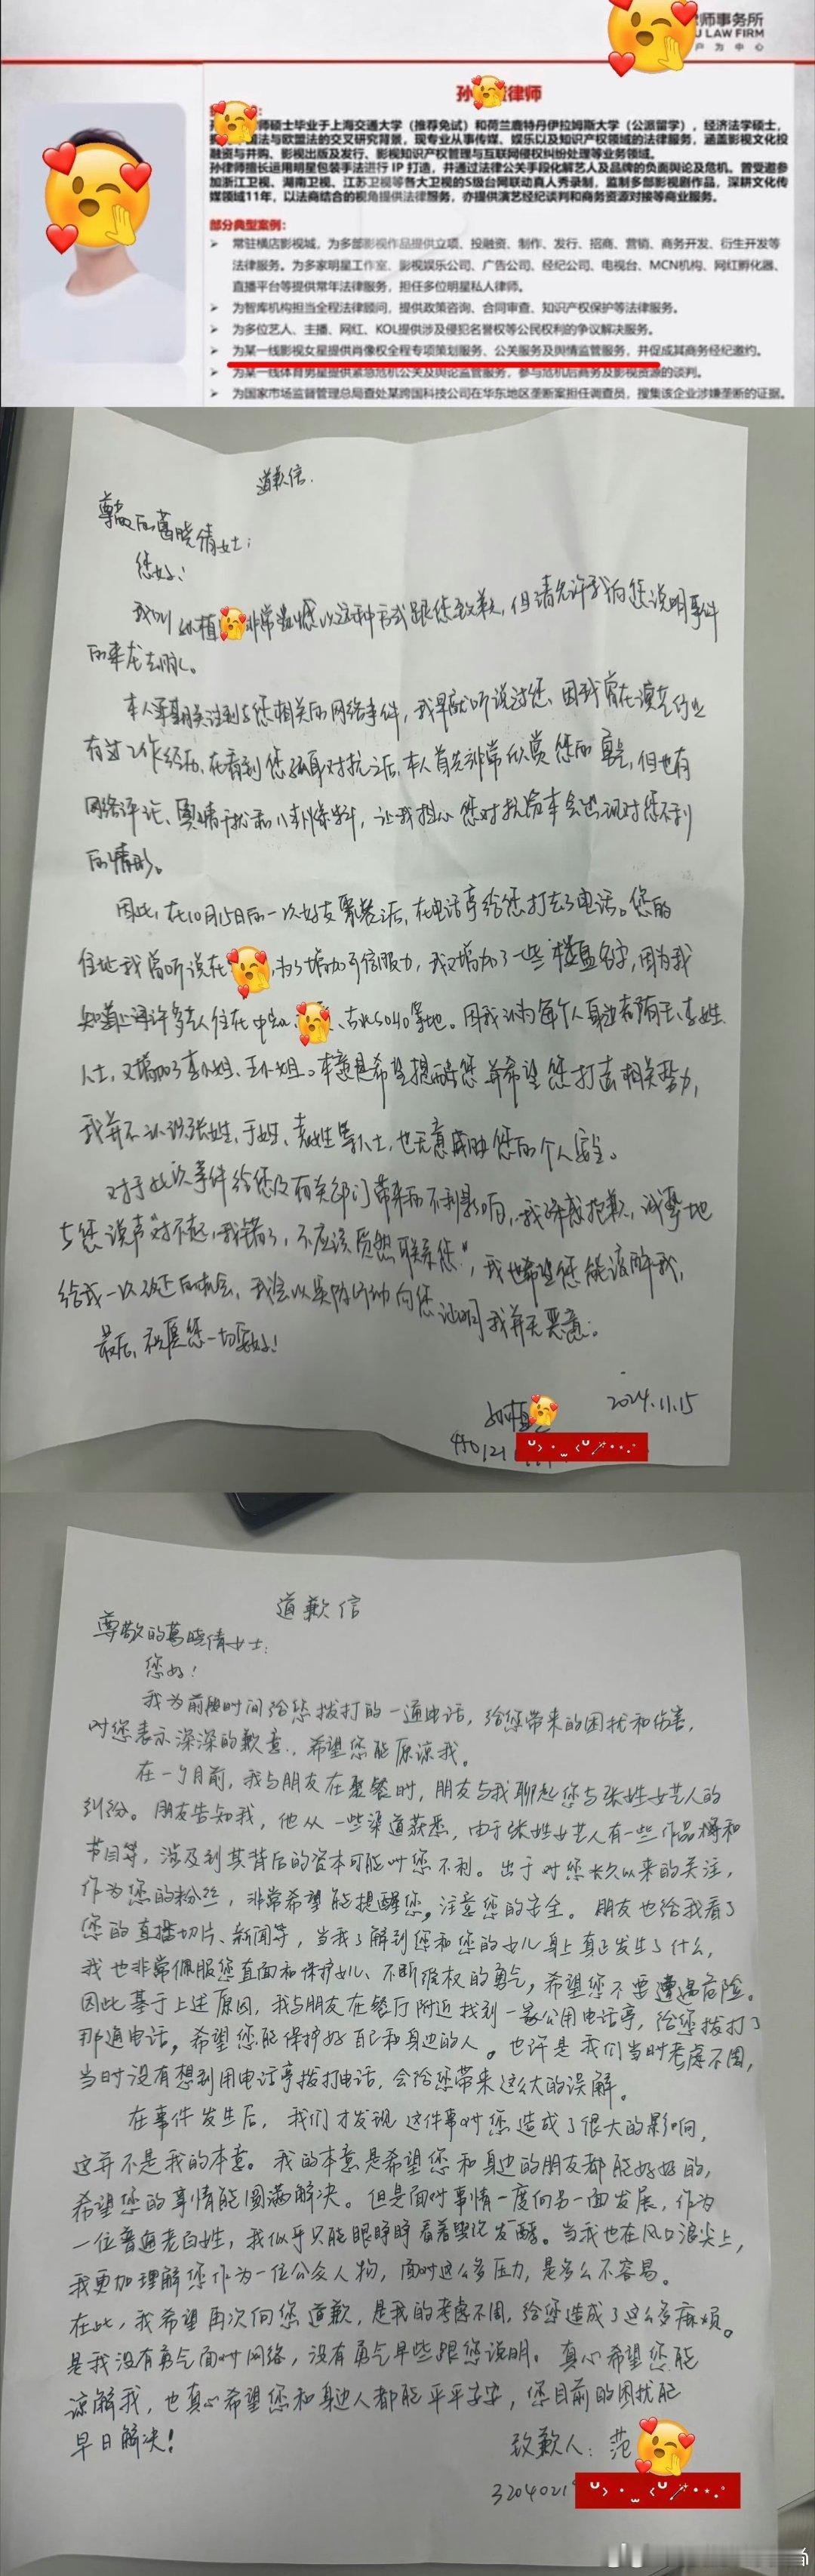 师事务所
LAW FIRM
户 为 中 心
孙 律师
师硕士毕业于上海交通大学（推荐免试）和荷兰鹿特丹伊拉姆斯大学（公派留学），经济法学硕士，
法与欧盟法的交叉研究背景，现专业从事传媒、娱乐以及知识产权领域的法律服务，涵盖影视文化投
融资与并购、影视出版及发行、影视知识产权管理与互联网侵权纠纷处理等业务领域。
孙律师擅长运用明星包装手法进行 IP 打造，并通过法律公关手段化解艺人及品牌的负面舆论及危机。曾受邀参
加浙江卫视、湖南卫视、江苏卫视等各大卫视的S级台网联动真人秀录制，监制多部影视剧作品，深耕文化传
媒领域11年，以法商结合的视角提供法律服务，亦提供演艺经纪谈判和商务资源对接等商业服务。
部分典型案例：
常驻横店影视城，为多部影视作品提供立项、投融资、制作、发行、招商、营销、商务开发、衍生开发等
法律服务。为多家明星工作室、影视娱乐公司、广告公司、经纪公司、电视台、MCN机构、网红孵化器、
直播平台等提供常年法律服务，担任多位明星私人律师。
为智库机构担当全程法律顾问，提供政策咨询、合同审查、知识产权保护等法律服务。
为多位艺人、主播、网红、KOL提供涉及侵犯名誉权等公民权利的争议解决服务。
为某一线影视女星提供肖像权全程专项策划服务、公关服务及舆情监管服务，并促成其商务经纪邀约。
为某一线体育男星提供紧急危机公关及舆论监管服务，参与危机后商务及影视资源的谈判。
为国家市场监督管理总局查处某跨国科技公司在华东地区垄断案担任调查员，搜集该企业涉嫌垄断的证据。
道歉信.
尊敬的葛晓倩女士：
您好！
我叫孙植 非常抱憾以这种方式跟您致歉，但请允许我向您说明事件
的来龙去脉。
本人早期关注到与您相关的网络事件，我早就听说过您、因我曾在演艺行业
有过工作经历、在看到您孤身对抗之后、本人首先非常欣赏您的勇气，但也有
网络评论、舆情干扰和八卦爆料，让我担心您对抗资本会出现对您不利
的情形。
因此，在10月15日的一次好友聚餐后，在电话亭给您打去了电话。您的
住址我曾听说在 ，为了增加可信服力，我又增加了一些楼盘名字，因为我
知道上海许多艺人住在中 、 、古北SOHO等地。因我认为每个人身边都有王、李姓
人士，又增加了李小姐、王小姐。本意是希望提醒您并希望您打击相关势力，
我并不认识张姓、于姓、袁姓等人士，也无意威胁您的个人安全。
对于此次事件给您及有关部门带来的不利影响，我深感抱歉，诚挚地
与您说声“对不起，我错了，不应该贸然联系您”，我也希望您能谅解我，
给我一次改正的机会，我会以实际行动向您证明我并无恶意。
最后，祝愿您一切安好！
孙植
2024.11.15
440121
道歉信
尊敬的葛晓倩女士：
您好！
我为前段时间给您拨打的一通电话，给您带来的困扰和伤害，
对您表示深深的歉意，希望您能原谅我。
在一个月前，我与朋友在聚餐时，朋友与我聊起您与张姓女艺人的
纠纷。朋友告知我，他从一些渠道获悉，由于张姓女艺人有一些作品和
节目等，涉及到其背后的资本可能对您不利。出于对您长久以来的关注，
作为您的粉丝，非常希望能提醒您，注意您的安全。朋友也给我看了
您的直播切片、新闻等，当我了解到您和您的女儿身上真正发生了什么，
我也非常佩服您直面和保护女儿、不断维权的勇气，希望您不要遭遇危险。
因此基于上述原因，我与朋友在餐厅附近找到一家公用电话亭，给您拨打了
那通电话，希望您能保护好自己和身边的人。也许是我们当时考虑不周，
当时没有想到用电话亭拨打电话，会给您带来这么大的误解。
在事件发生后，我们才发现这件事对您造成了很大的影响，
这并不是我的本意。我的本意是希望您和身边的朋友都能好好的，
希望您的事情能圆满解决。但是面对事情一度向另一面发展，作为
一位普通老百姓，我似乎只能眼睁睁看着舆论发酵。当我也在风口浪尖上，
我更加理解您作为一位公众人物，面对这么多压力，是多么不容易。
在此，我希望再次向您道歉，是我的考虑不周，给您造成了这么多麻烦。
是我没有勇气面对网络，没有勇气早些跟您说明。真心希望您能
谅解我，也真心希望您和身边人都能平平安安，您目前的困扰能
早日解决！
致歉人：范
3204021